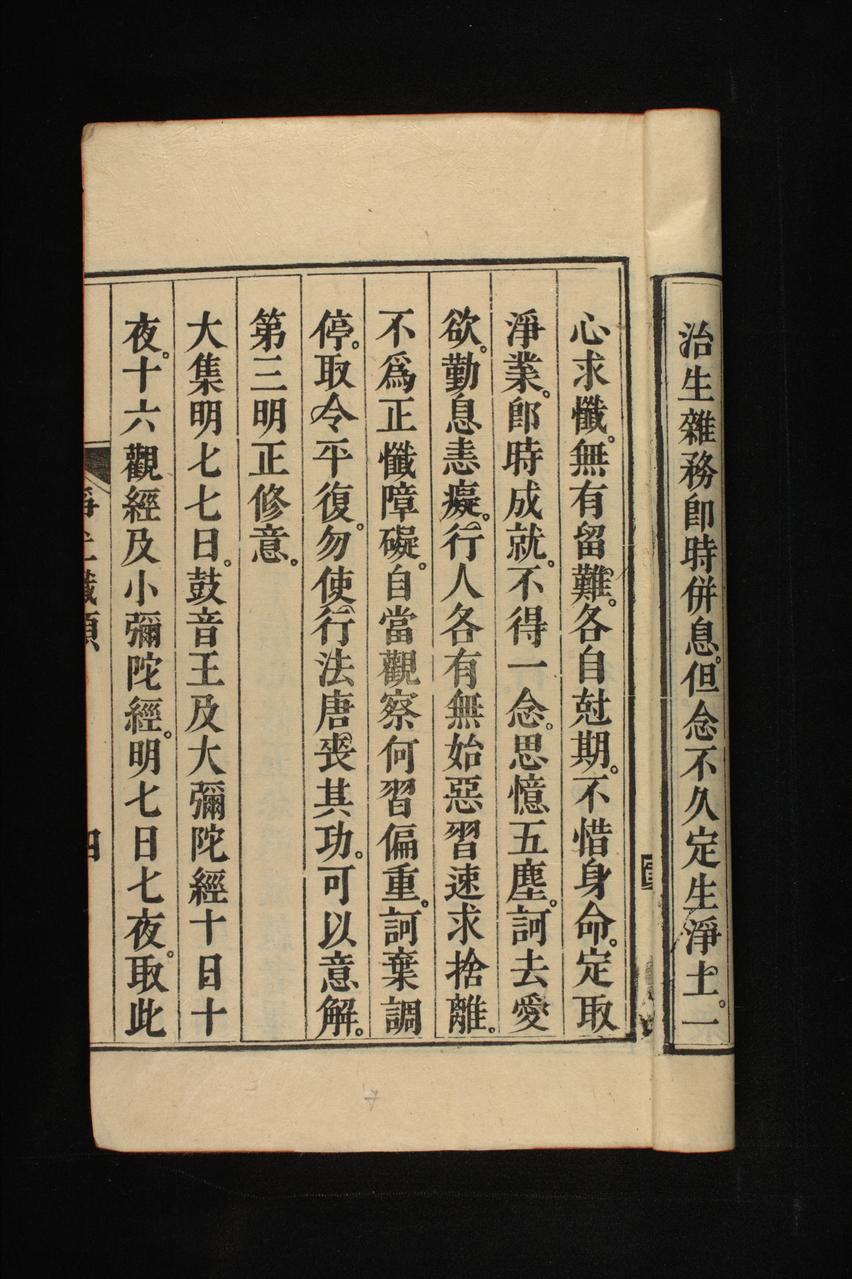 治生雜務即時併息。但念不久定生淨土。一
心求懺。無有留難。各自尅期。不惜身命。定取
淨業。即時成就。不得一念。思憶五塵。訶去愛
欲。勤息恚癡。行人各有無始惡習速求捨離。
不爲正懺障礙。自當觀察何習偏重。訶棄調
停。取令平復。勿使行法唐喪其功。可以意解。
第三明正修意。
大集明七七日。鼓音王及大彌陀經十日十
夜。十六觀經及小彌陀經。明七日七夜。取此
淨土懺願 四